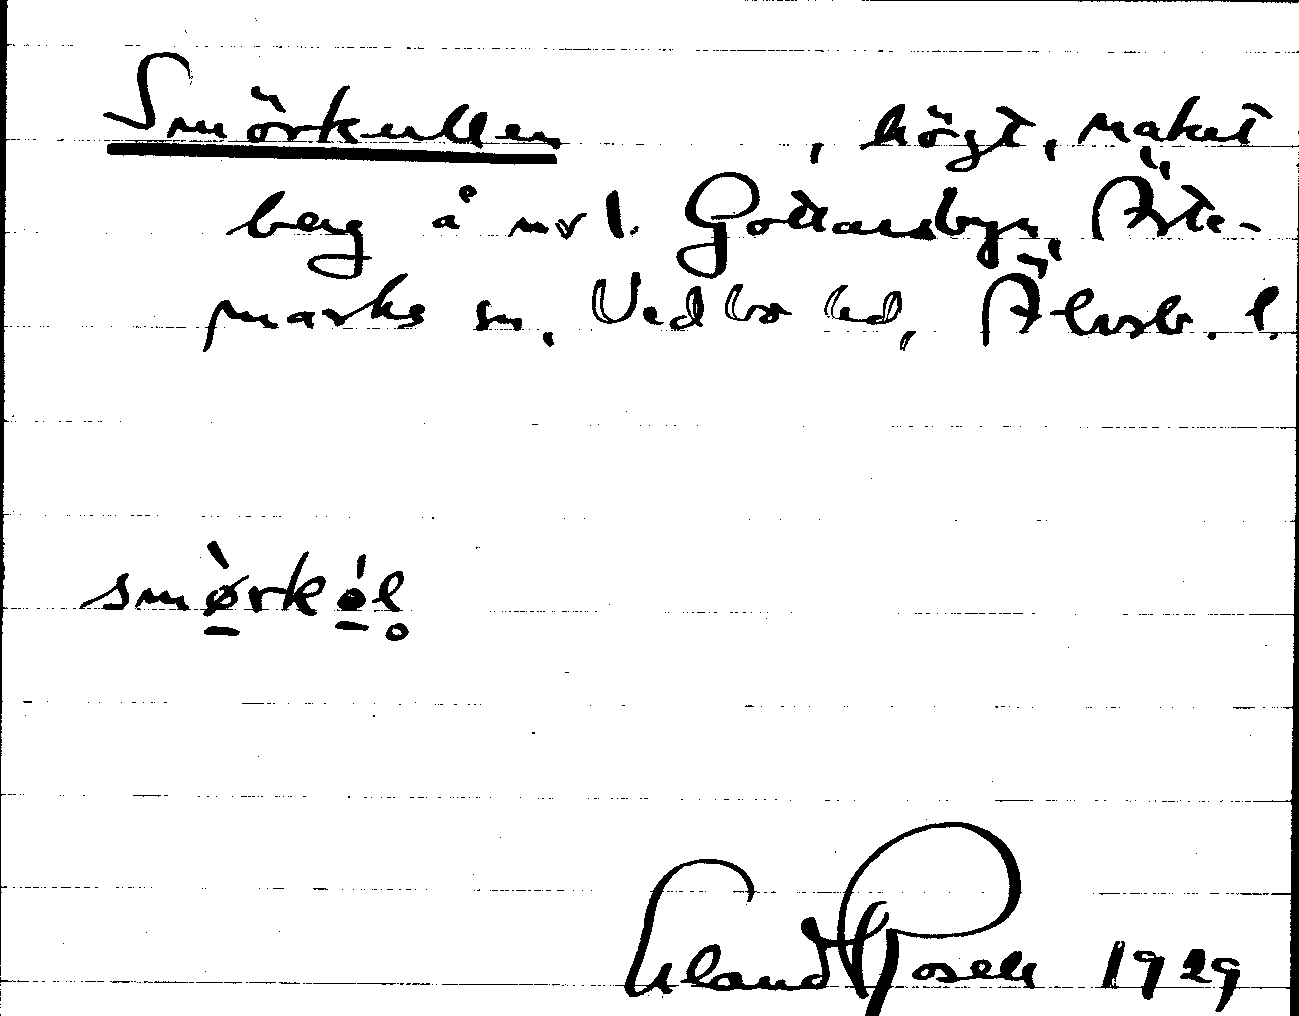 Smörkullen , högt, naket
berg å nv l. Gottarsbyn, Ärte-
marks sn, Vedbo hd, Älvsb. l.
smø̀rkó̤l̥
Erland Rosell 1929